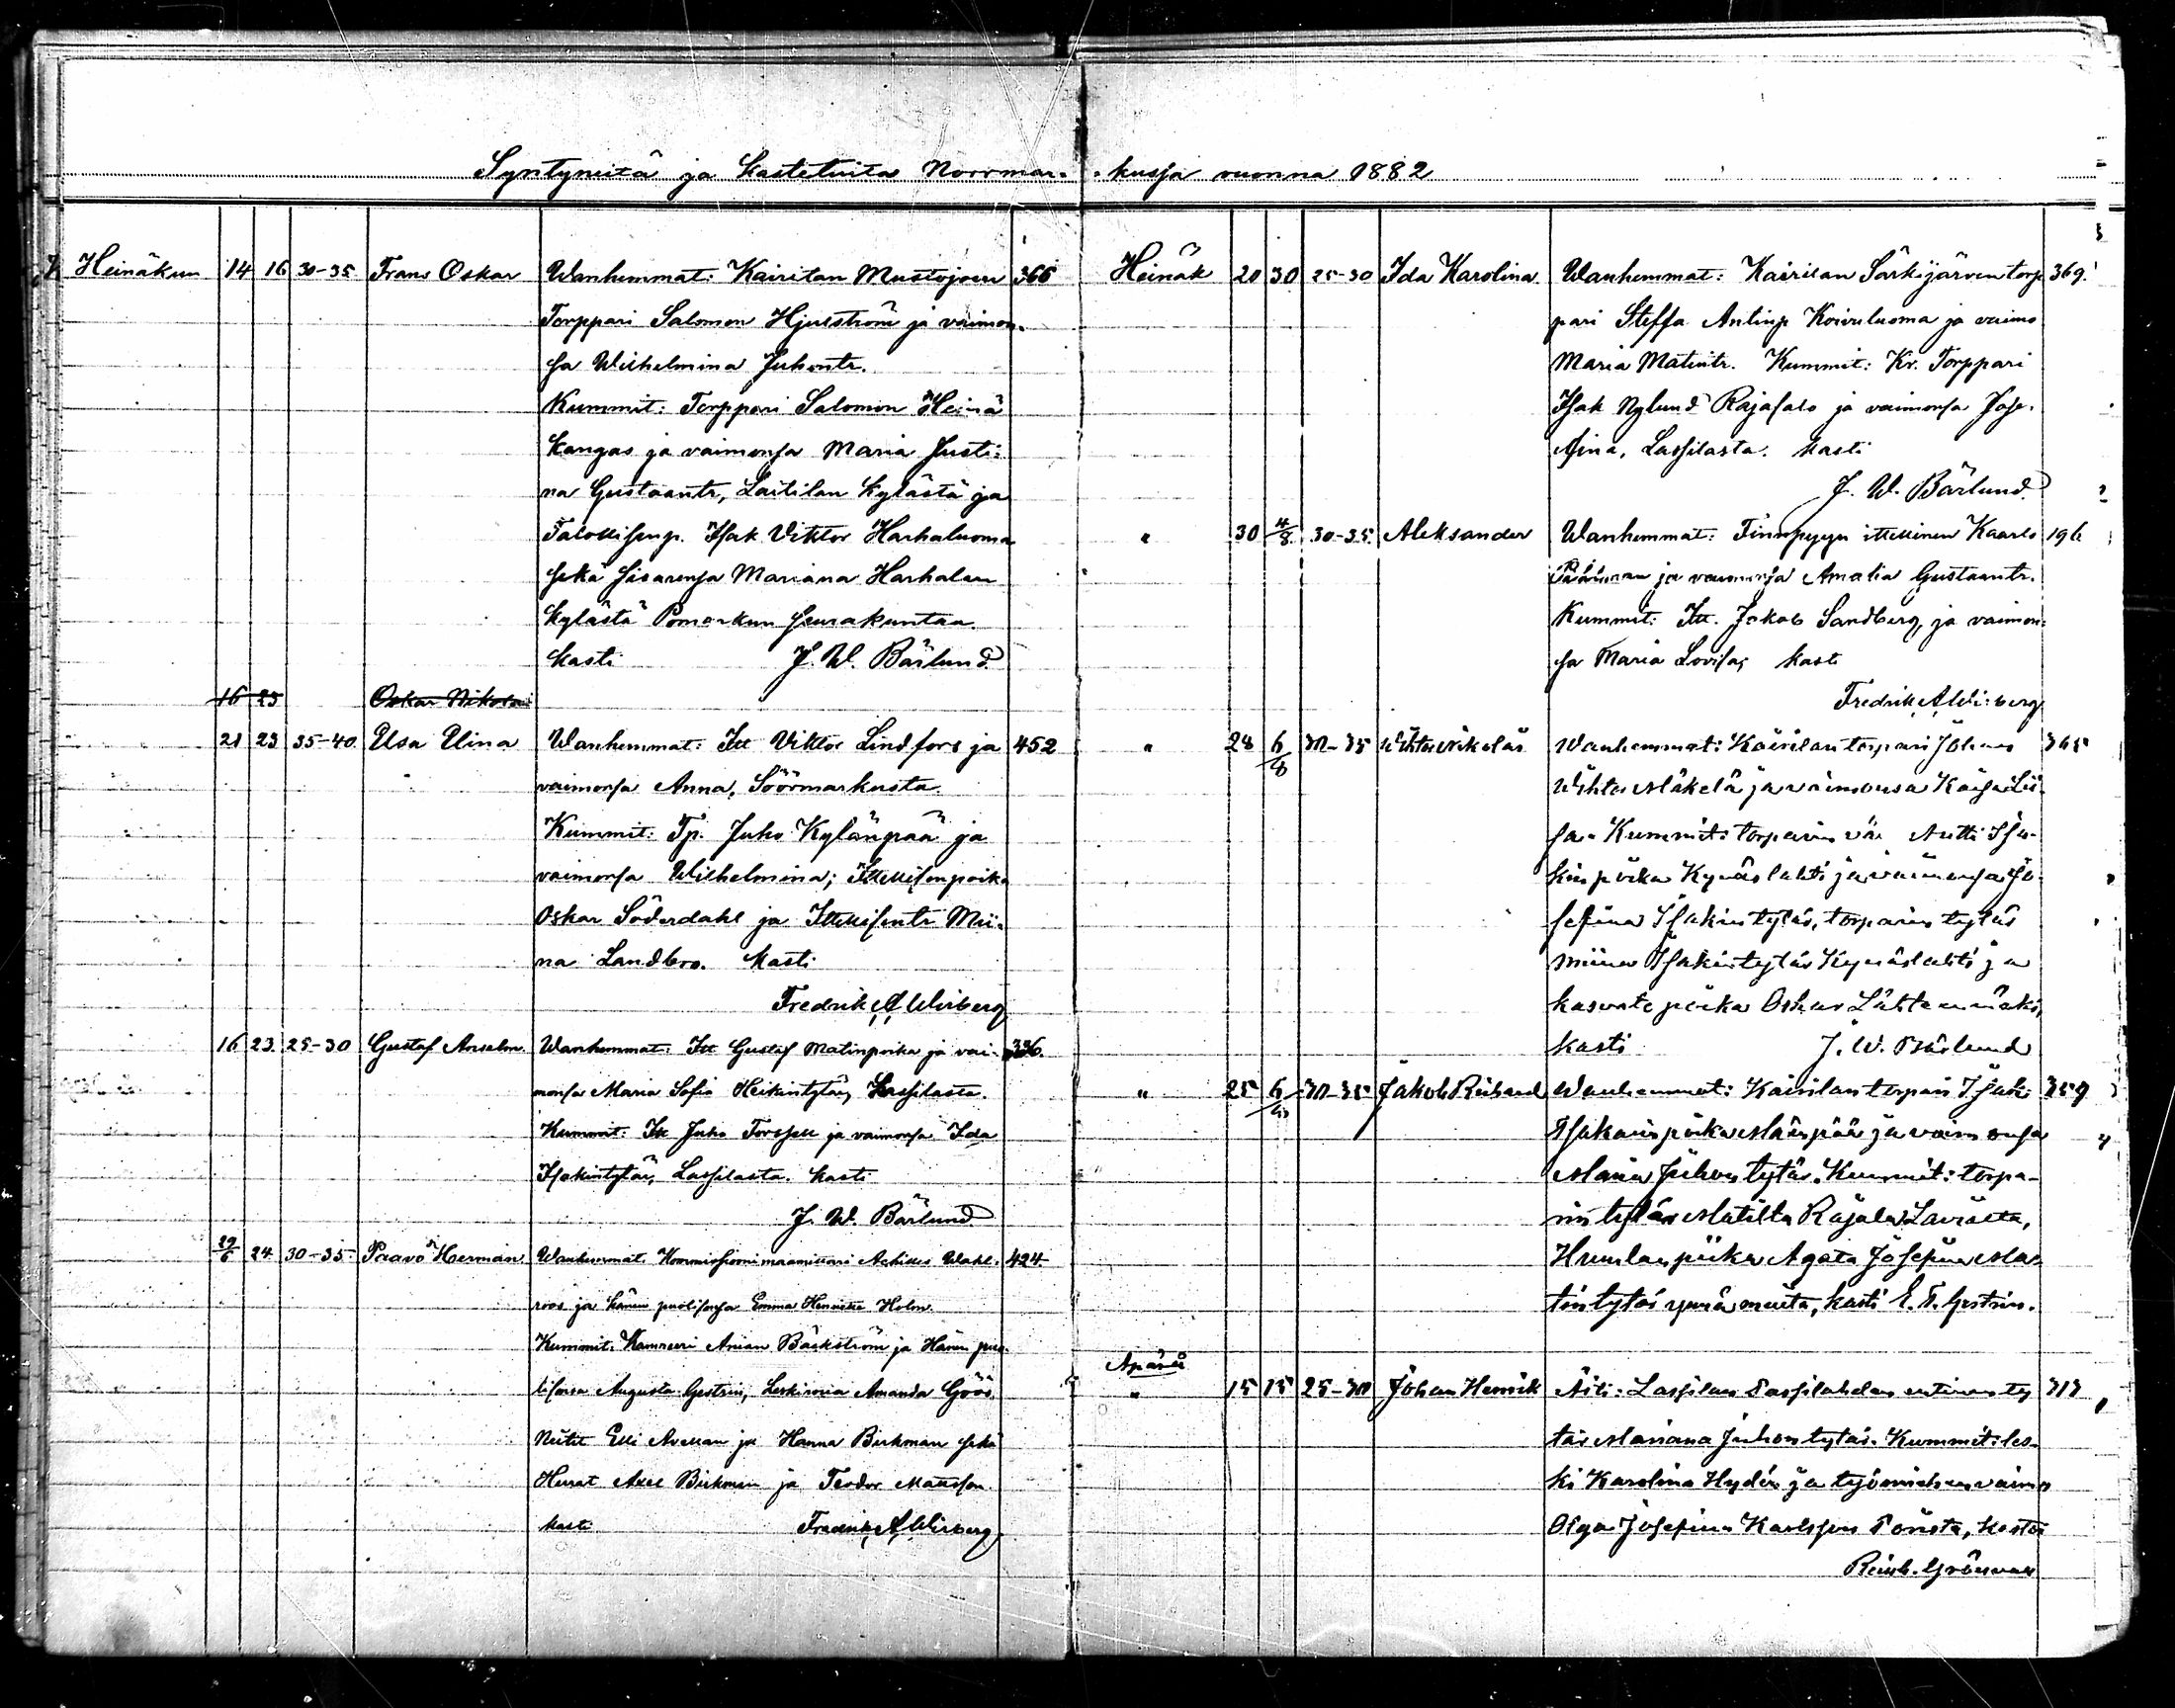 Syntyneitä ja kastetuita Norrmar-
Heinäkun 14 16 30-35 Frans Oskar Wanhemmat: Kairilan Mustojoen 366
Torppari Salomon Hjulström ja vaimon-
sa Wilhelmina Juhontr.
Kummit: Torppari Salomon Heinä
kangas ja vaimonsa Maria Justi-
na Gustaantr, Laitilan kylästä ja
Talollisenp. Isak Viktor Harhaluoma
sekä sisarensa Mariana Harhalan
kylästä Pomarkun seurakuntaa.
kasti J. W. Bärlund
16 23 Oskar Nikolai
21 23 35-40 Elsa Elina Wanhemmat: Itt Viktor Lindfors ja 452
vaimonsa Anna, Söörmarkusta.
Kummit: Tp. Juho Kylänpää ja
vaimonsa Wilhelmina; Itellisenpoika
Oskar Söderdahl ja Itellisentr Mii-
na Landbro. kasti
Fredrik A Wirberg
16 23 25-30 Gustaf Anselm Wanhemmat: Itt Gustaf Matinpoika ja vai- 336.
monsa Maria Sofia Heikintytär, Lassilasta.
Kummit: Itt Juho Forssell ja vaimonsa Ida
Isakintytär, Lassilasta. kasti
J. W. Bärlund
29/6 24 30-35 Paavo Herman Wanhemmat: Kommissionimaamittari Achilles Wahl- 424
roos ja hänen puolisonsa Emma Holm
Kummit: Kamreeri Backström ja Hänen puo-
lisonsa Augusta Gestrin, Leskirouva Amanda Göös,
Neitit Elli Avellan ja Hanna Birkman sekä
Herrat Axel Birkman ja Teodor Mattsson.
kasti Fredrik A Wirberg
kussa vuonna 1882
Heinäk 20 30 25-30 Ida Karolina Wanhemmat: Kairilan Särkijärven torp 369.
pari Steffa Antinp Koivuluoma ja vaimo
Maria Matintr. Kummit: Kr. Torppari
Isak Nylund Rajasalo ja vaimonsa Jose-
fina, Lassilasta. kasti
J. W. Bärlund
" 30 4/8 30-35 Aleksander Wanhemmat: Finnpyyn itellinen Kaarlo 196
ja vaimonsa Amalia Gustaantr.
Kummit: Itt. Jakob Sandberg, ja vaimon-
sa Maria Lovisa; kasti
Fredrik A Wirberg
" 28 6/8 30-35 Wihtor Nikolai Wanhemmat: Kairilan torpari Johan 365
Wihtor Mäkelä ja vaimonsa Kaisa Lii-
sa. Kummit: torparin Antti Isa-
kinpoika Kynäslahti ja vaimonsa Jo-
sefina Isakintytär, torparin tytär
Miina Isakintytär Kynäslahti ja
kasvatepoika Oskar Lähteenmäki,
kasti J. W. Bärlund
" 25 6/8 30-35 Jakob Richard Wanhemmat: Kairilan torpari Isak 359
Isakinpoika Mäenpää ja vaimonsa
Maria Juhontytär. Kummit: torpa-
rin tytär Matilta Rajala
piika Agata Josefina Ma-
tintytär kasti E. F. Gestrin.
Apärä
" 15 15 25-30 Johan Henrik Äiti: Lassilan Passilahden entinen ty 313
tär Mariana Juhontytär. Kummit: les-
ki Karolina Hydén ja työmiehen vaimo
Olga Josefina Karlsson Porista, kastoi
Reinh. Grönvall